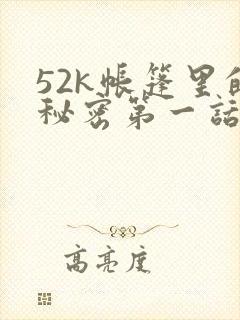 52k帳篷里的
秘密第一話
高亮度